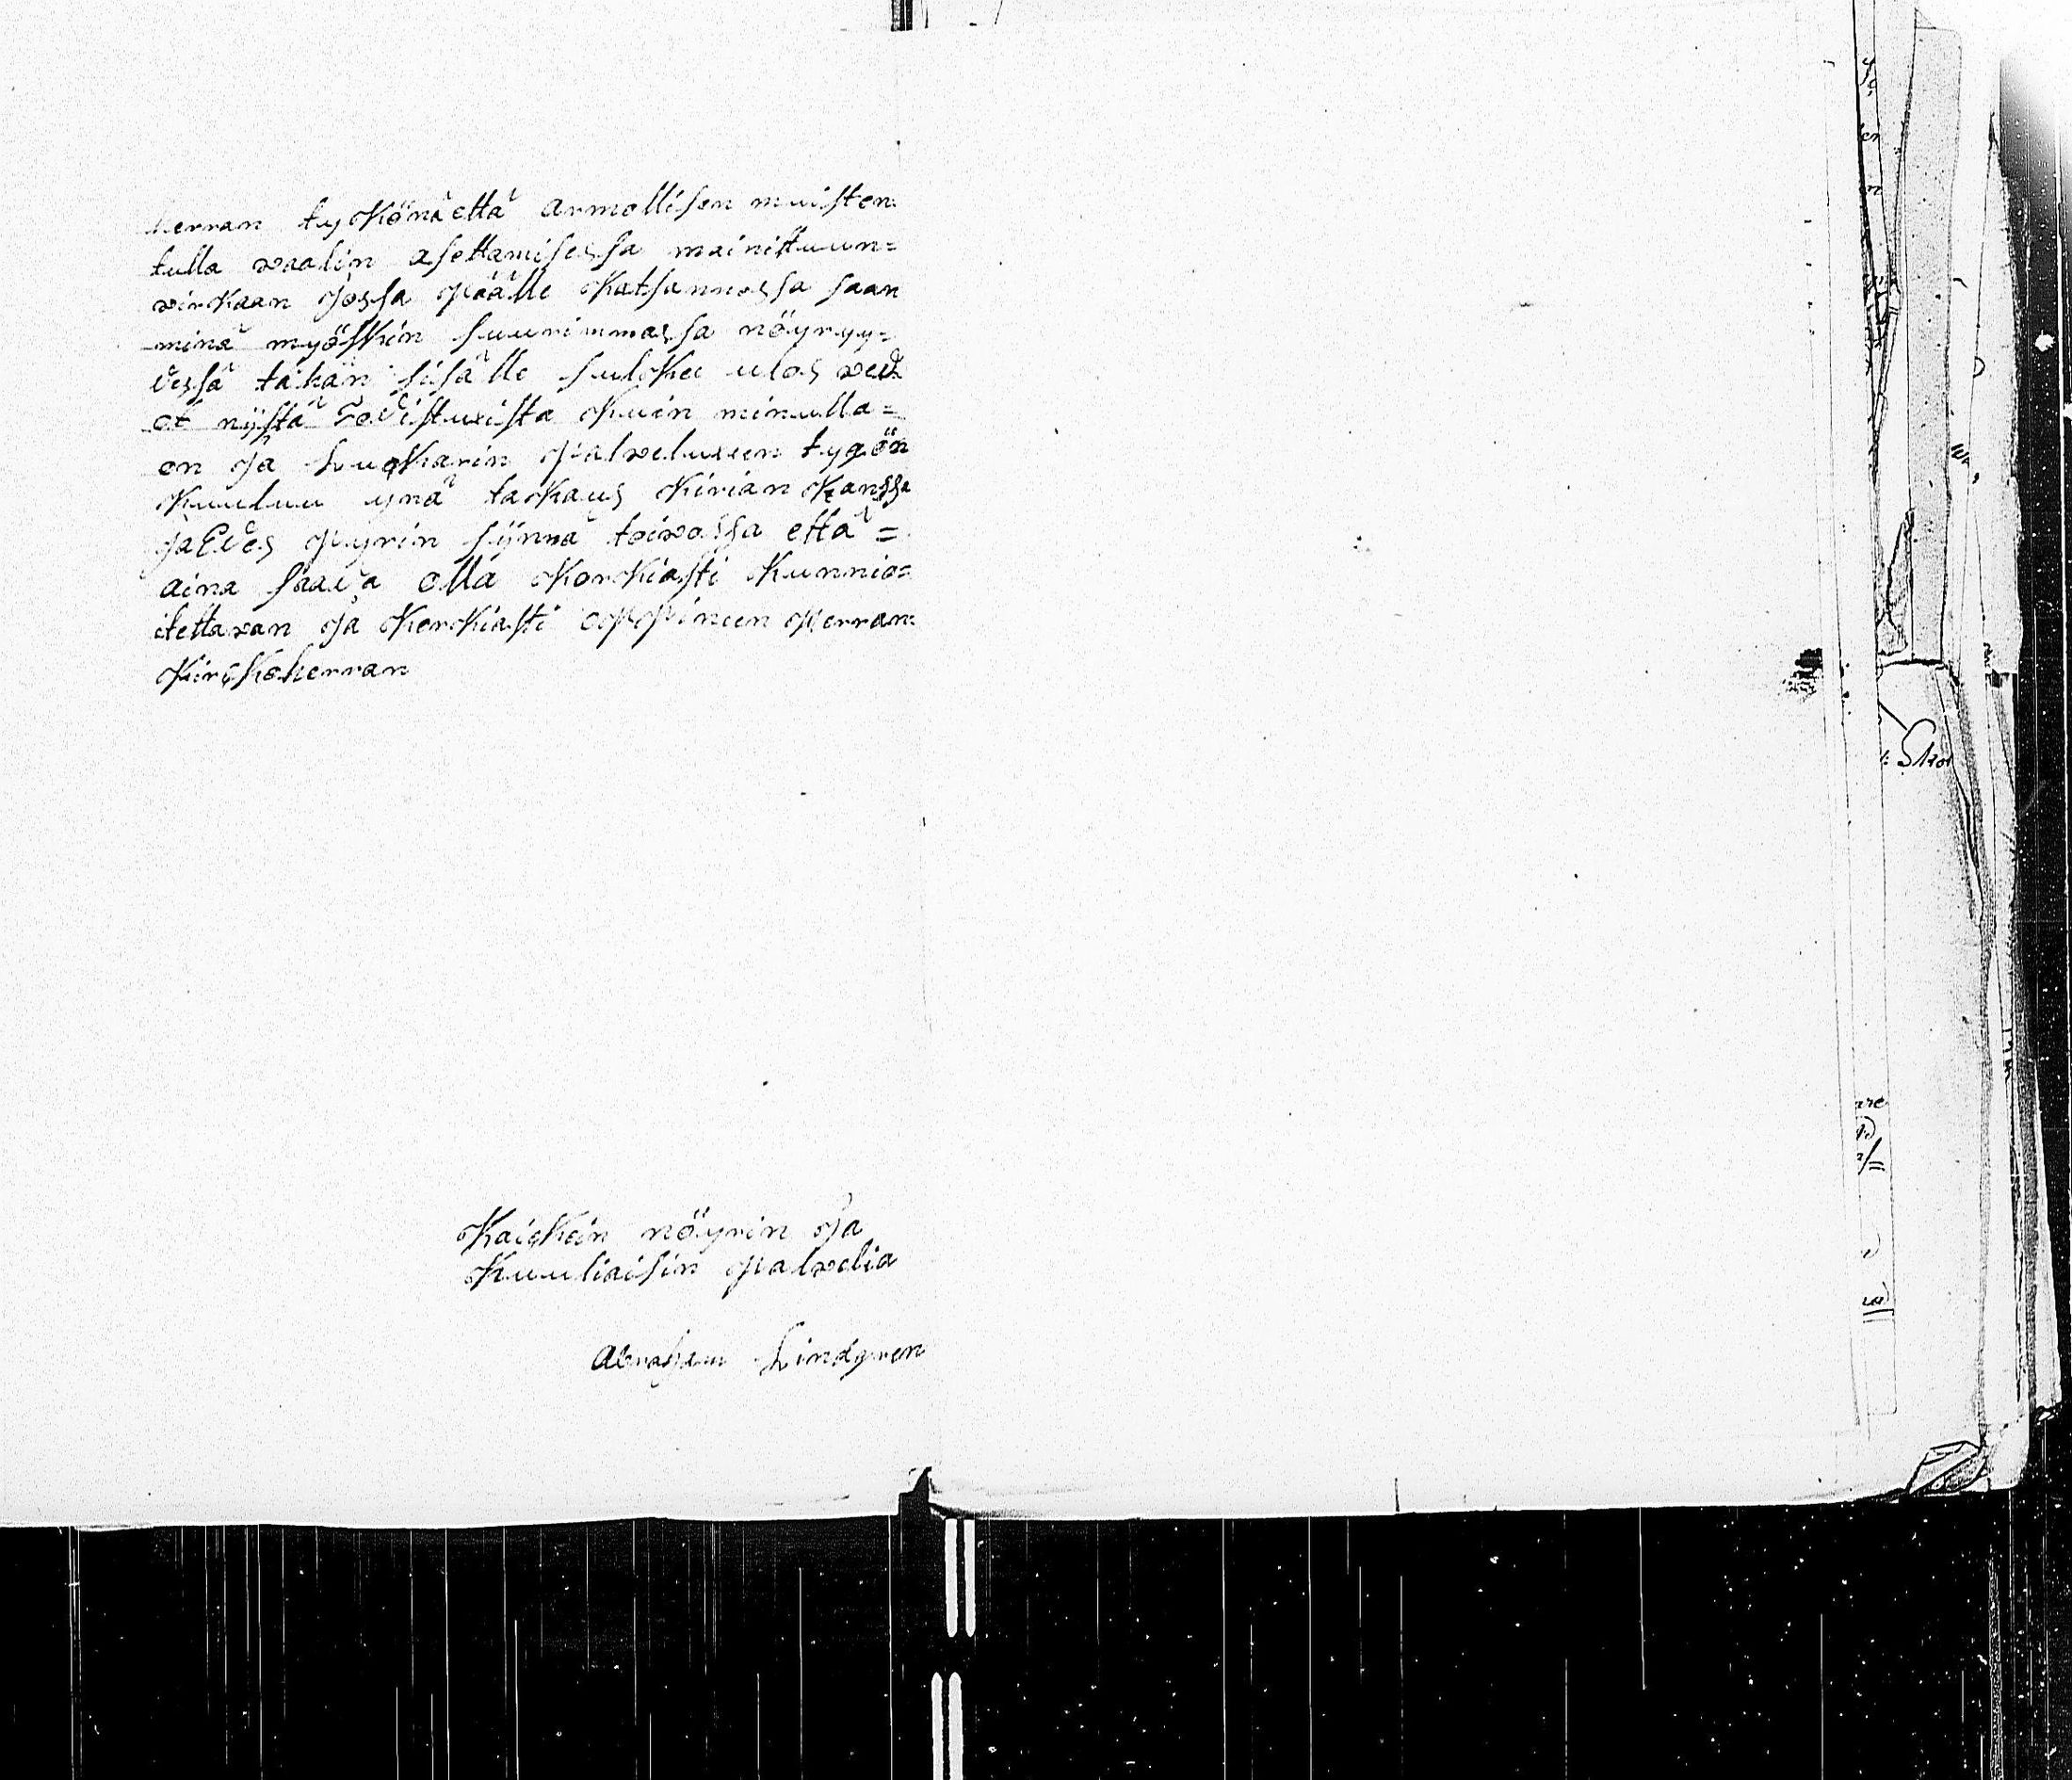 herran tykönä että armollisen muisten
tulla vaalin asettamisessa mainittuun=
virkaan jossa päälle katsannossa saan
minä myöskin suurimmassa nöyryy=
dessä tähän sisälle sulkea ulos ved
ot niistä todistuxista kuin minulla=
on ja Luckarin palveluxeen tygön
kuuluu ynä takaus kirian kanssa
ja Edes pyrin siinnä toivossa että=
aina saada olla korkiasti kunnio=
itettavan ja korkiasti oppineen Herran
kirckoherran
Kaickein nöyrin ja
kuuliaisin palvelia
Abraham Lindgren